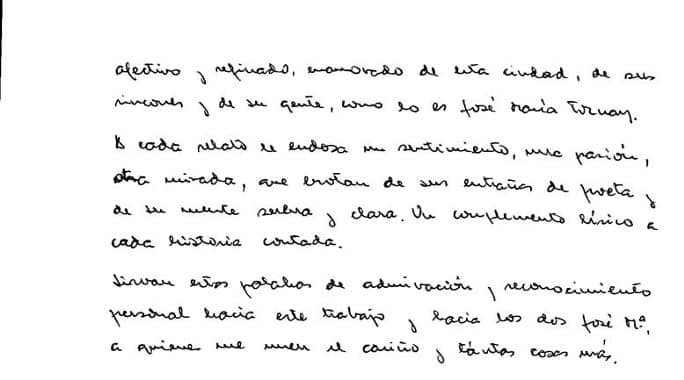 afectivo y refinado, enamorado de esta ciudad, de sus
rincones y de su gente, como lo es José María Turnay.
A cada relato le endosa un sentimiento, una pasión,
otra mirada, que brotan de sus entrañas de poeta y
de su mente serena y clara. Un complemento lírico a
cada historia contada.
Sirvan estas palabras de admiración y reconocimiento
personal hacia este trabajo y hacia los dos José Mª,
a quienes me unen el cariño y tantas cosas más.